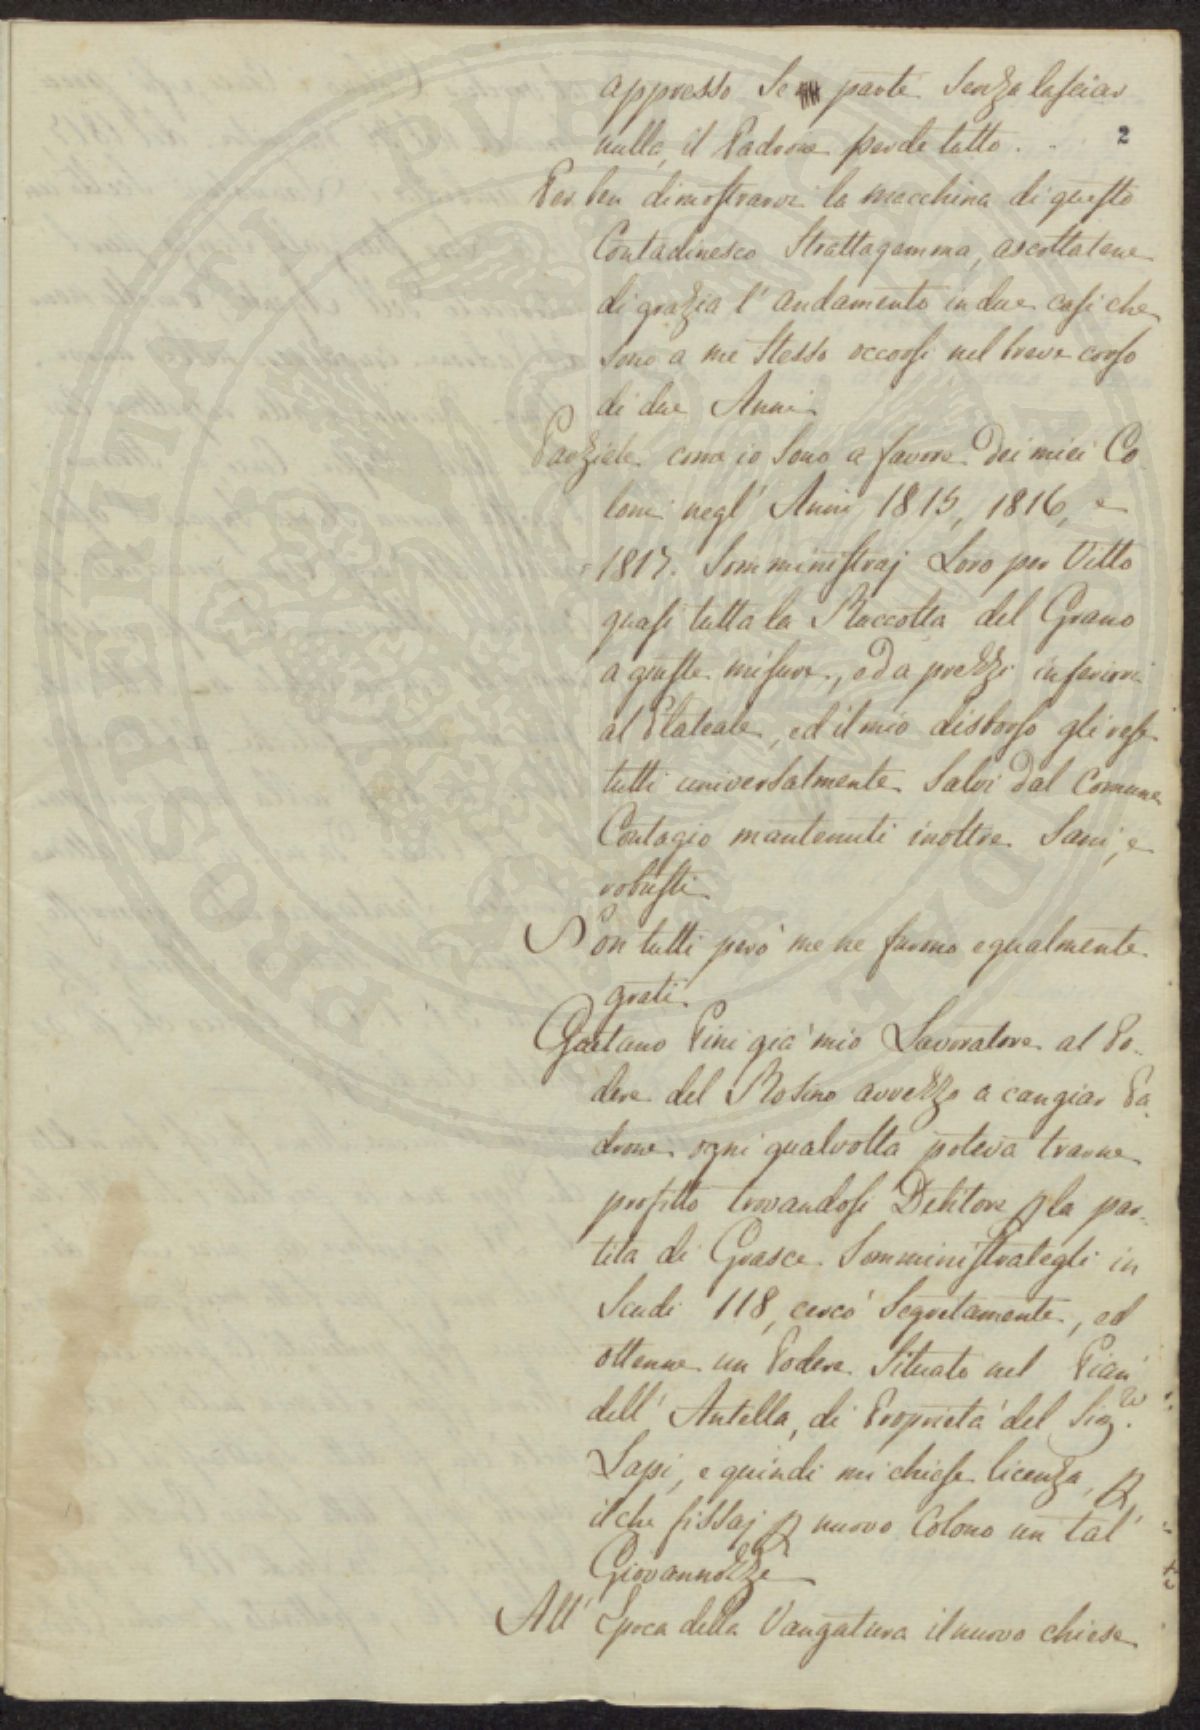 appresso Se parte Senza lasciar
nulla, il Padrone perde tutto . . 2
Per ben dimostrarvi la macchina di questo
Contadinesco Strattagemma, ascoltatene
di grazia l' andamento in due casi che
Sono a me Stesso occorsi nel breve corso
di due Anni.
Parziale come io Sono a favore Dei miei Co
loni negl' Anni 1815, 1816, e
1817. Somministraj Loro per Vitto
quasi tutta la Raccolta del Grano
a giuste misure, ed a prezzi inferiori
al Plateale, ed il mio disborso gli rese
tutti universalmente Salvi dal Comune
Contagio mantenuti inoltre Sani, e
robusti.
Non tutti però me ne furono egualmente
grati.
Gaetano Pini già mio Lavoratore al Po-
dere del Rosino avvezzo a cangiar Pa-
drone ogni qualvolta poteva trarne
profitto trovandosi Debitore p la par-
tita di Grasce Somministrategli in
Scudi 118, cercò Segretamente, ed
ottenne un Podere Situato nel Pian
dell' Antella, di Proprietà del Sig.re
Lapi, e quindi mi chiese licenza, p
il che fissaj p nuovo Colono un tal'
Giovannozzi
All' Epoca della Vangatura il nuovo chiese